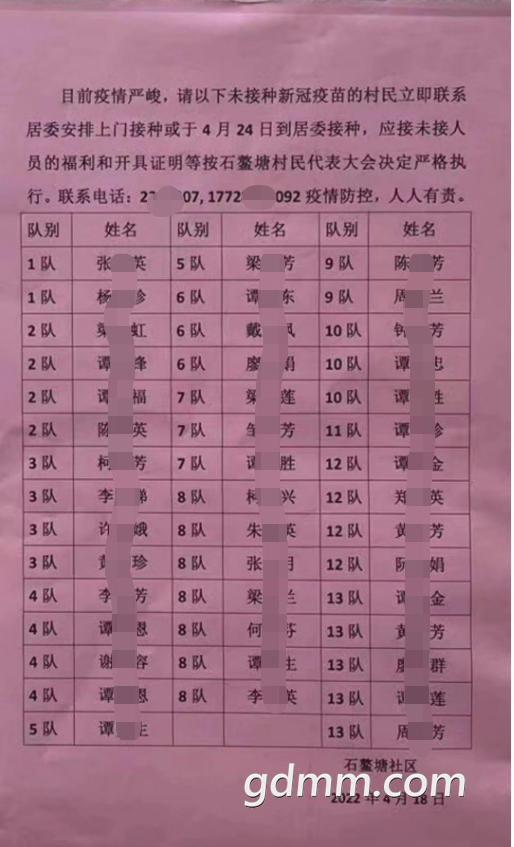 目前疫情严峻，请以下未接种新冠疫苗的村民立即联系
居委安排上门接种或于4月24日到居委接种，应接未接人
员的福利和开具证明等按石鳌塘村民代表大会决定严格执
行。联系电话：22 07, 1772 092 疫情防控，人人有责。
队别 姓名 队别 姓名 队别 姓名
1队 张 英 5队 梁 芳 9队 陈 芳
1队 杨 珍 6队 谭 东 9队 周 兰
2队 梁 虹 6队 戴 凤 10队 钟 芳
2队 谭 锋 6队 廖 娟 10队 谭 忠
2队 谭 福 7队 梁 莲 10队 谭 胜
2队 陈 英 7队 邹 芳 11队 谭 珍
3队 柯 芳 7队 谭 胜 12队 谭 金
3队 李 娣 8队 柯 兴 12队 郑 英
3队 许 娥 8队 朱 英 12队 黄 芳
3队 黄 珍 8队 张 月 12队 阮 娟
4队 李 芳 8队 梁 兰 13队 谭 金
4队 谭 恩 8队 何 芬 13队 黄 芳
4队 谢 容 8队 谭 生 13队 廖 群
4队 谭 恩 8队 李 英 13队 谭 莲
5队 谭 生 13队 周 芳
石鳌塘社区
gdmm.com
2022年4月18日